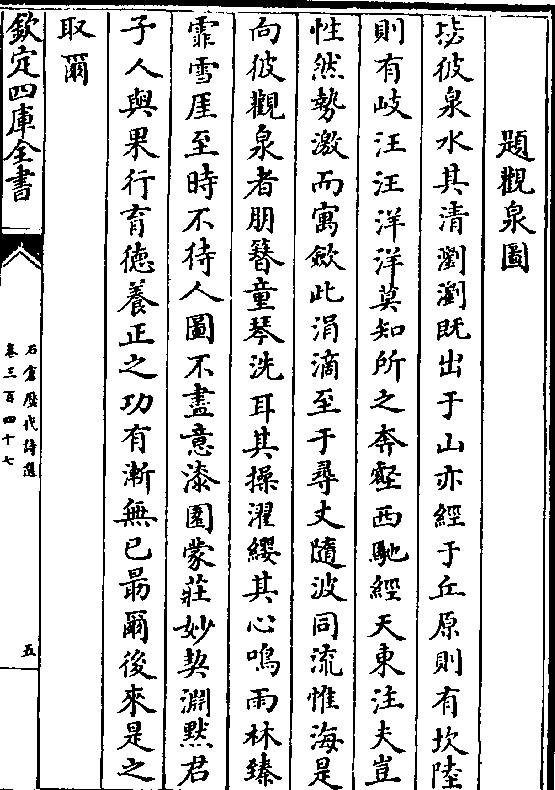 題觀泉圖
毖彼泉水其清瀏瀏既出于山亦經于丘原則有坎陸
則有岐汪汪洋洋莫知所之奔壑西馳經天東注夫豈
性然勢激而寓歛此涓滴至于尋丈隨波同流惟海是
向彼觀泉者朋簪童琴洗耳其操濯纓其心鳴雨林臻
霏雪厓至時不待人圖不盡意漆園蒙莊妙契淵默君
子人與果行育德養正之功有漸無已朂爾後來是之
取爾
欽定四庫全書
石倉歷代詩選
卷三百四十七
五